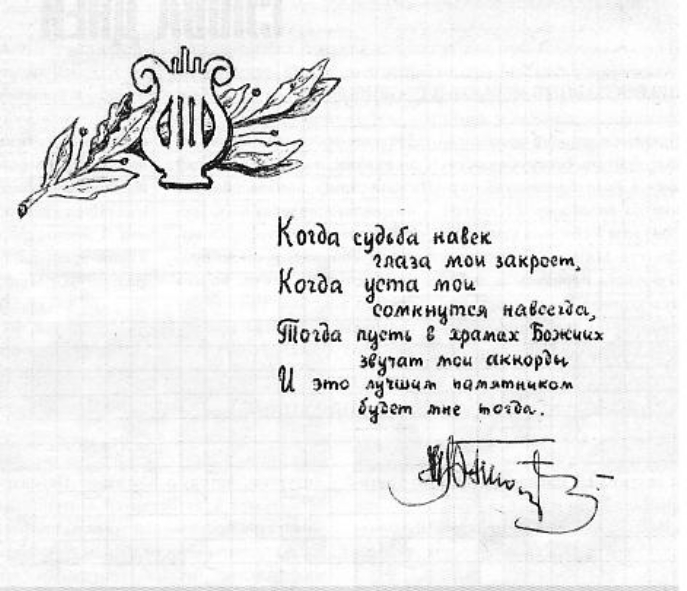 Когда судьба навек
глаза мои закроет,
Когда уста мои
сомкнутся навсегда,
Тогда пусть в храмах Божиих
звучат мои аккорды
И это лучшим памятником
будет мне тогда.